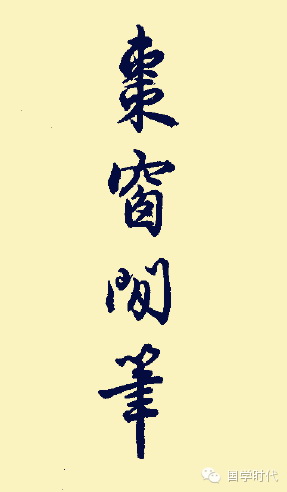 棗窗閒筆
国学时代